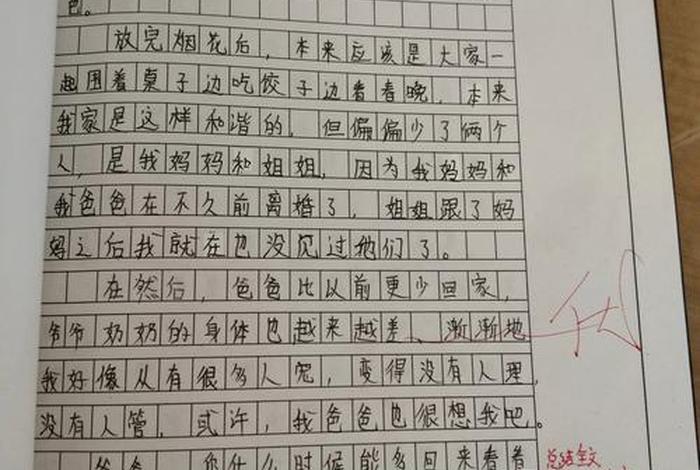 色。
放完烟花后,本来应该是大家一
起围着桌子边吃饺子边看春晚,本来
我家是这样和谐的,但偏偏少了俩个
人,是我妈妈和姐姐,因为我妈妈和
我爸爸在不久前离婚了,姐姐跟了妈
妈之后我就在也没见过她们了。
在然后,爸爸比以前更少回家,
爷爷奶奶的身体也越来越差、渐渐地
我好像从有很多人宠,变得没有人理,
没有人管,或许,我爸爸也很想我吧。
爸爸,你什么时候能多回来看看
总结全文